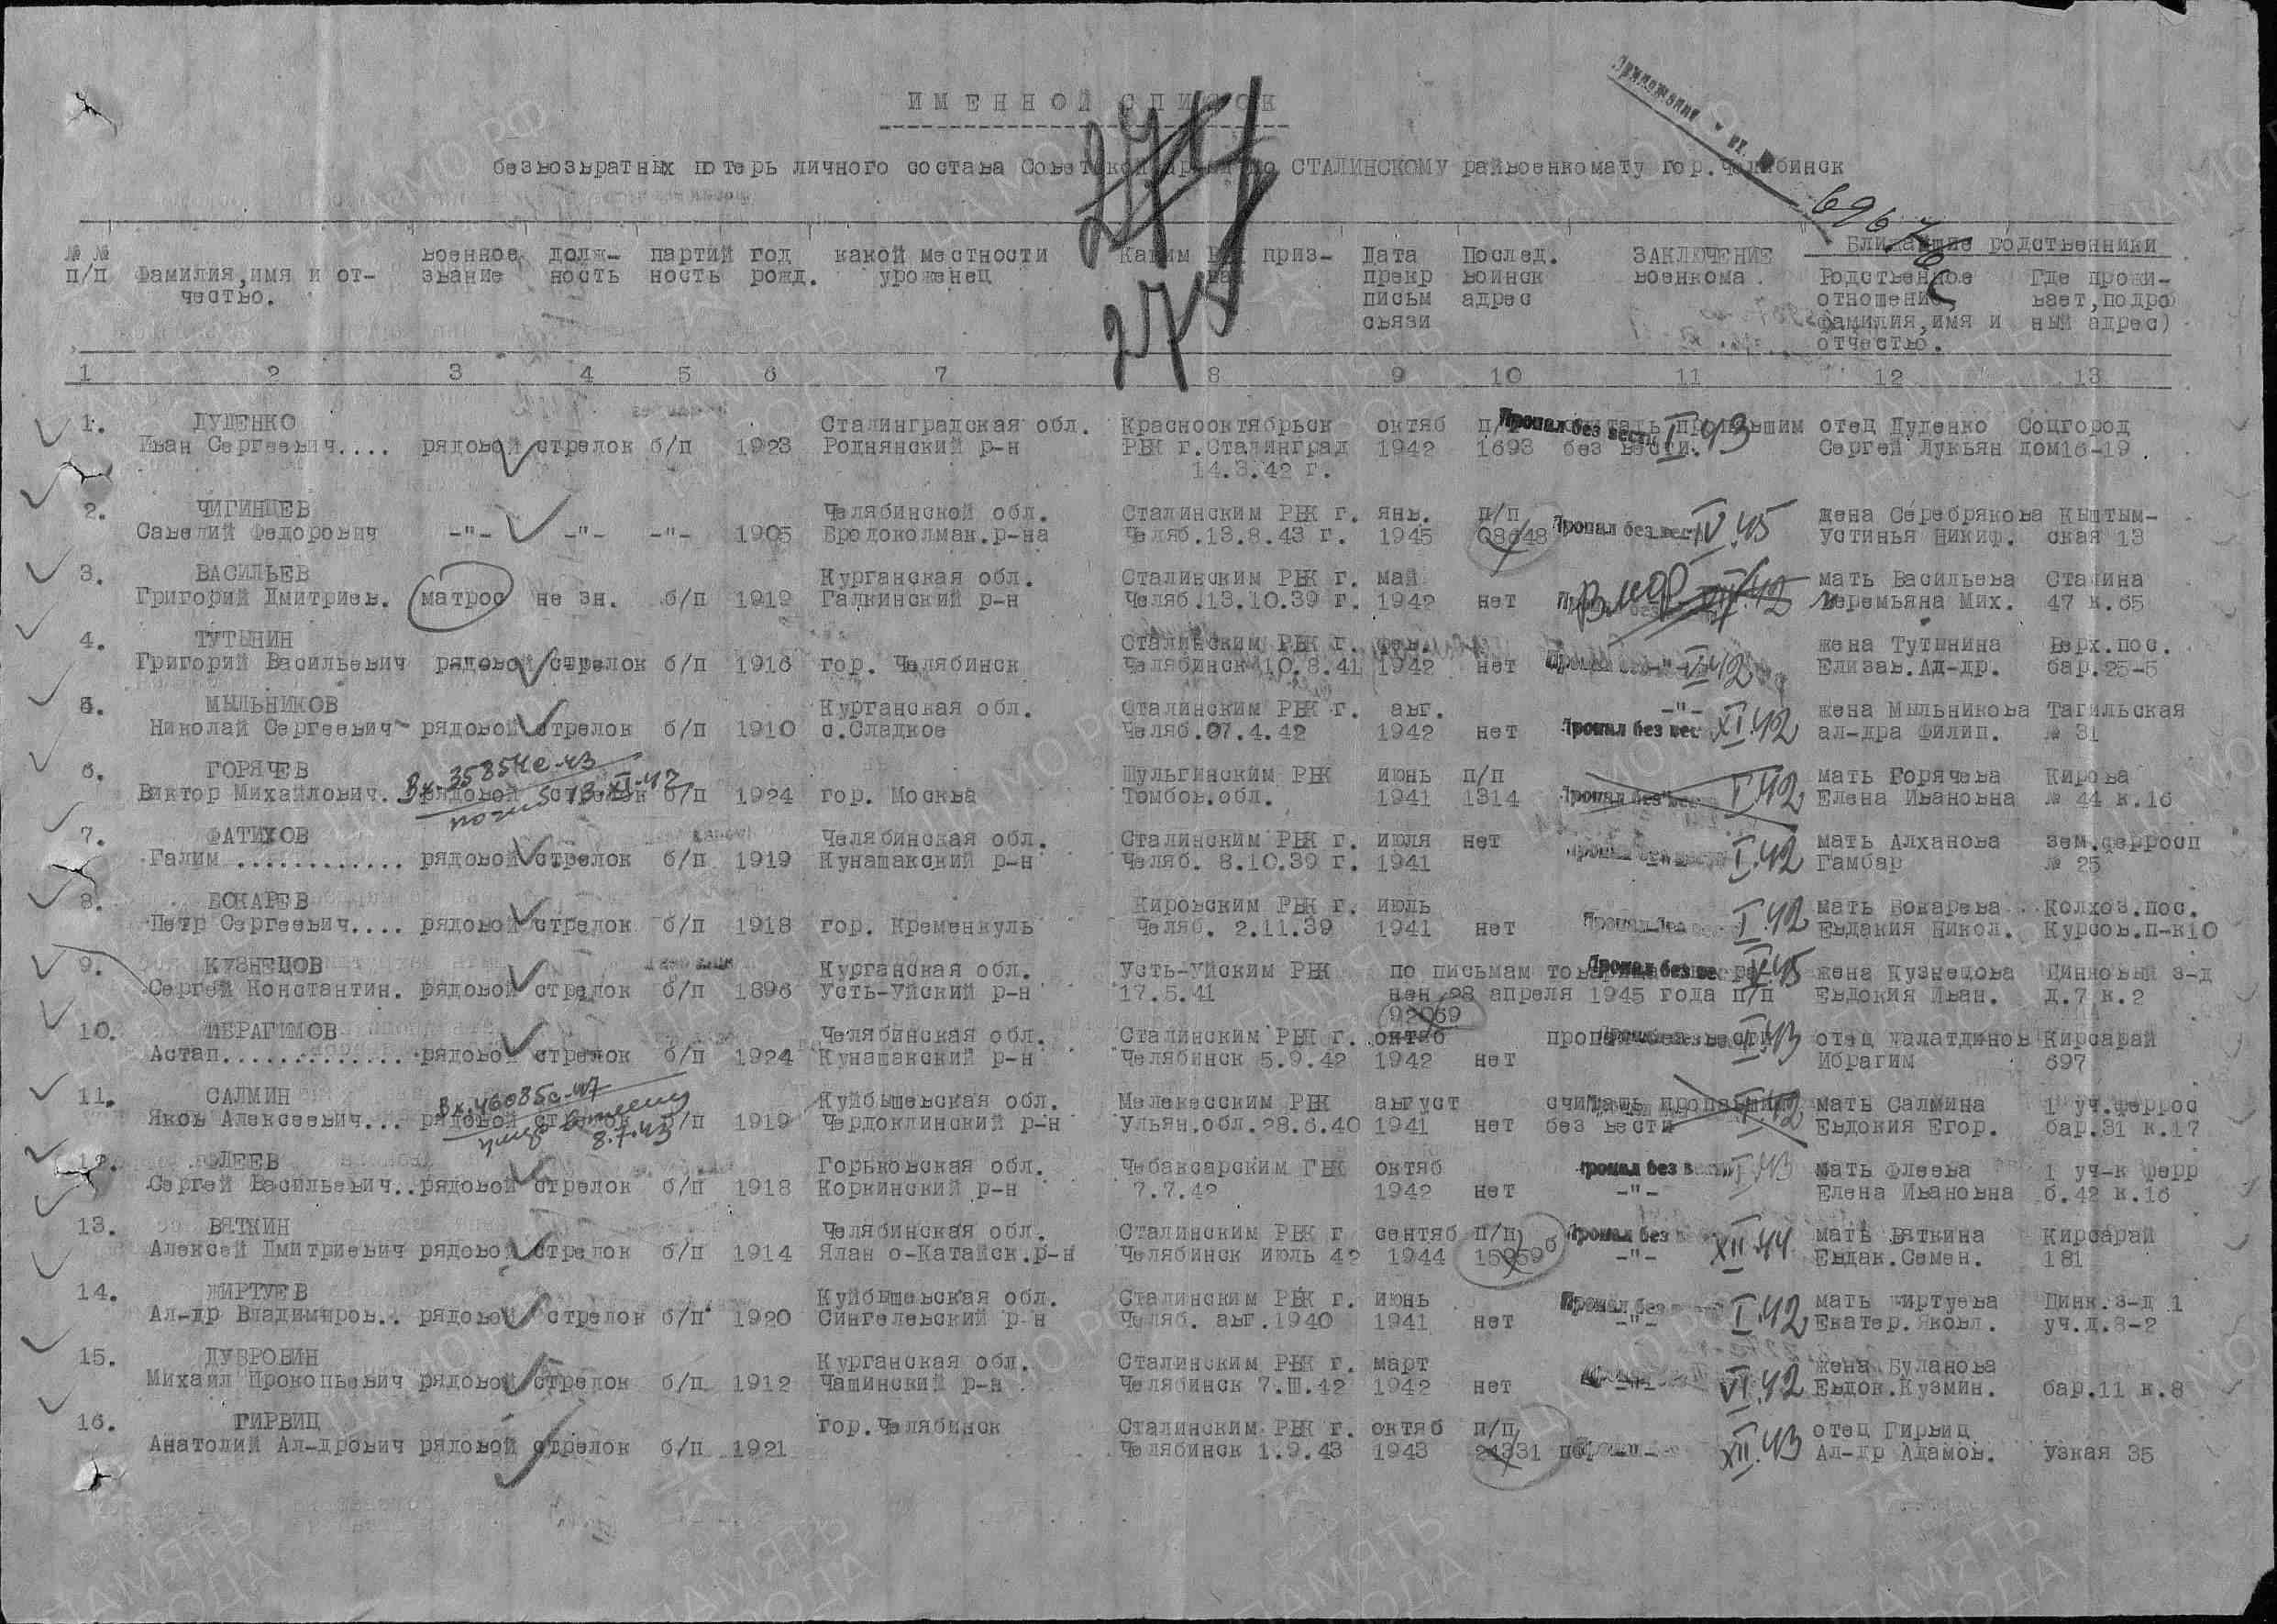 ИМЕННОЙ СПИСОК
безвозвратных потерь личного состава Советской Армии по СТАЛИНСКОМУ райвоенкомату гор.Челябинск
274
275
69676
№ № военное долж- партий год какой местности Каким приз- Дата Послед. ЗАКЛЮЧЕНИЕ Ближайшие родственники
п/п Фамилия,имя и от- звание ность ность рожд. уроженец ван прекр воинск военкома. Родственное Где прожи-
чество. письм адрес отношение, вает,подро
связи фамилия,имя и ный адрес)
отчество.
1 2 3 4 5 6 7 8 9 10 11 12 13
1. ДУДЕНКО Сталинградская обл. Краснооктябрьск октяб Пропал без вести отец Дуденко Соцгород
Иван Сергеевич.... рядовой стрелок б/п 1923 Роднянский р-н РВК г.Сталинград 1942 1693 без вести. I.43 Сергей Лукьян дом16-19
14.3.42 г.
2. ЧИГИНЦЕВ Челябинской обл. Сталинским РВК г. янв. п/п жена Серебрякова Кыштым-
Савелий Федорович -"- -"- -"- 1905 Бродоколмак.р-на Челяб.13.8.43 г. 1945 Пропал без вести V.45 Устинья Никиф. ская 13
3. ВАСИЛЬЕВ Курганская обл. Сталинским РВК г. май мать Васильева Сталина
Григорий Дмитриев. матрос не зн. б/п 1919 Галкинский р-н Челяб.13.10.39 г. 1942 нет Веремьяна Мих. 47 к.65
4. ТУТЫНИН Сталинским РВК г. фев. жена Тутынина Верх.пос.
Григорий Васильевич рядовой стрелок б/п 1916 гор. Челябинск Челябинск 10.8.41 1942 нет -"- VI.42 Елизав.Ал-др. бар.25-5
5. МЫЛЬНИКОВ Курганская обл. Сталинским РВК г. авг. -"- жена Мыльникова Тагильская
Николай Сергеевич рядовой стрелок б/п 1910 с.Сладкое Челяб.07.4.42 1942 нет Пропал без вес XI.42 ал-дра Филип. № 31
6. ГОРЯЧЕВ Вх.35854с-43 Шульгинским РВК июнь п/п мать Горячева Кирова
Виктор Михайлович. рядовой стрелок б/п 1924 гор. Москва Томбов.обл. 1941 1314 Пропал без вес I.42 Елена Ивановна № 44 к.16
7. ФАТИХОВ Челябинская обл. Сталинским РВК г. июля нет мать Алханова зем.ферросп
Галим ............ рядовой стрелок б/п 1919 Кунашакский р-н Челяб. 8.10.39 г. 1941 -"- I.42 Гамбар № 25
8. БОКАРЕВ Кировским РВК г. июль мать Бокарева Колхоз.пос.
Петр Сергеевич.... рядовой стрелок б/п 1918 гор. Кременкуль Челяб. 2.11.39 1941 нет I.42 Евдакия Никол. Курсов.п-к10
9. КУЗНЕЦОВ Курганская обл. Усть-Уйским РВК по письмам Пропал без вес V.45 жена Кузнецова Цинковый з-д
Сергей Константин. рядовой стрелок б/п 1896 Усть-Уйский р-н 17.5.41 нен 28 апреля 1945 года п/п Евдокия Иван. д.7 к.2
92069
10. ИБРАГИМОВ Челябинская обл. Сталинским РВК г. октяб I.43 отец Кирсарай
Астап............. рядовой стрелок б/п 1924 Кунашакский р-н Челябинск 5.9.42 1942 нет Ибрагим 697
11. САЛМИН Вх.46085с-47 Куйбышевская обл. Мелекесским РВК август считать пропавшим мать Салмина 1 уч.феррос
Яков Алексеевич... рядовой стрелок б/п 1919 Чердоклинский р-н Ульян.обл.28.6.40 1941 нет без вести Евдокия Егор. бар.31 к.17
8.7.43
12. ФЛЕЕВ Горьковская обл. Чебаксарским РВК октяб Пропал без вести I.43 мать Флеева 1 уч-к ферр
Сергей Васильевич..рядовой стрелок б/п 1918 Коркинский р-н 7.7.42 1942 нет -"- Елена Ивановна б.42 к.16
13. ВЯТКИН Челябинская обл. Сталинским РВК г сентяб п/п Пропал без XII.44 мать Вяткина Кирсарай
Алексей Дмитриевич рядовой стрелок б/п 1914 Ялан о-Катайск.р-н Челябинск июль 42 1944 -"- Евдак.Семен. 181
14. ЖИРТУЕВ Куйбышевская обл. Сталинским РВК г. июнь Пропал без I.42 мать Жиртуева Цинк.з-д 1
Ал-др Владимиров.. рядовой стрелок б/п 1920 Сингелевский р-н Челяб. авг.1940 1941 нет -"- Екатер.Яковл. уч.д.8-2
15. ДУБРОВИН Курганская обл. Сталинским РВК г. март жена Буланова
Михаил Прокопьевич рядовой стрелок б/п 1912 Чашинский р-н Челябинск 7.III.42 1942 нет VI.42 Евдок.Кузмин. бар.11 к.8
16. ГИРВИЦ гор.Челябинск Сталинским РВК г. октяб п/п отец Гирвиц
Анатолий Ал-дрович рядовой стрелок б/п 1921 Челябинск 1.9.43 1943 -"- XII.43 Ал-др Адамов. узкая 35